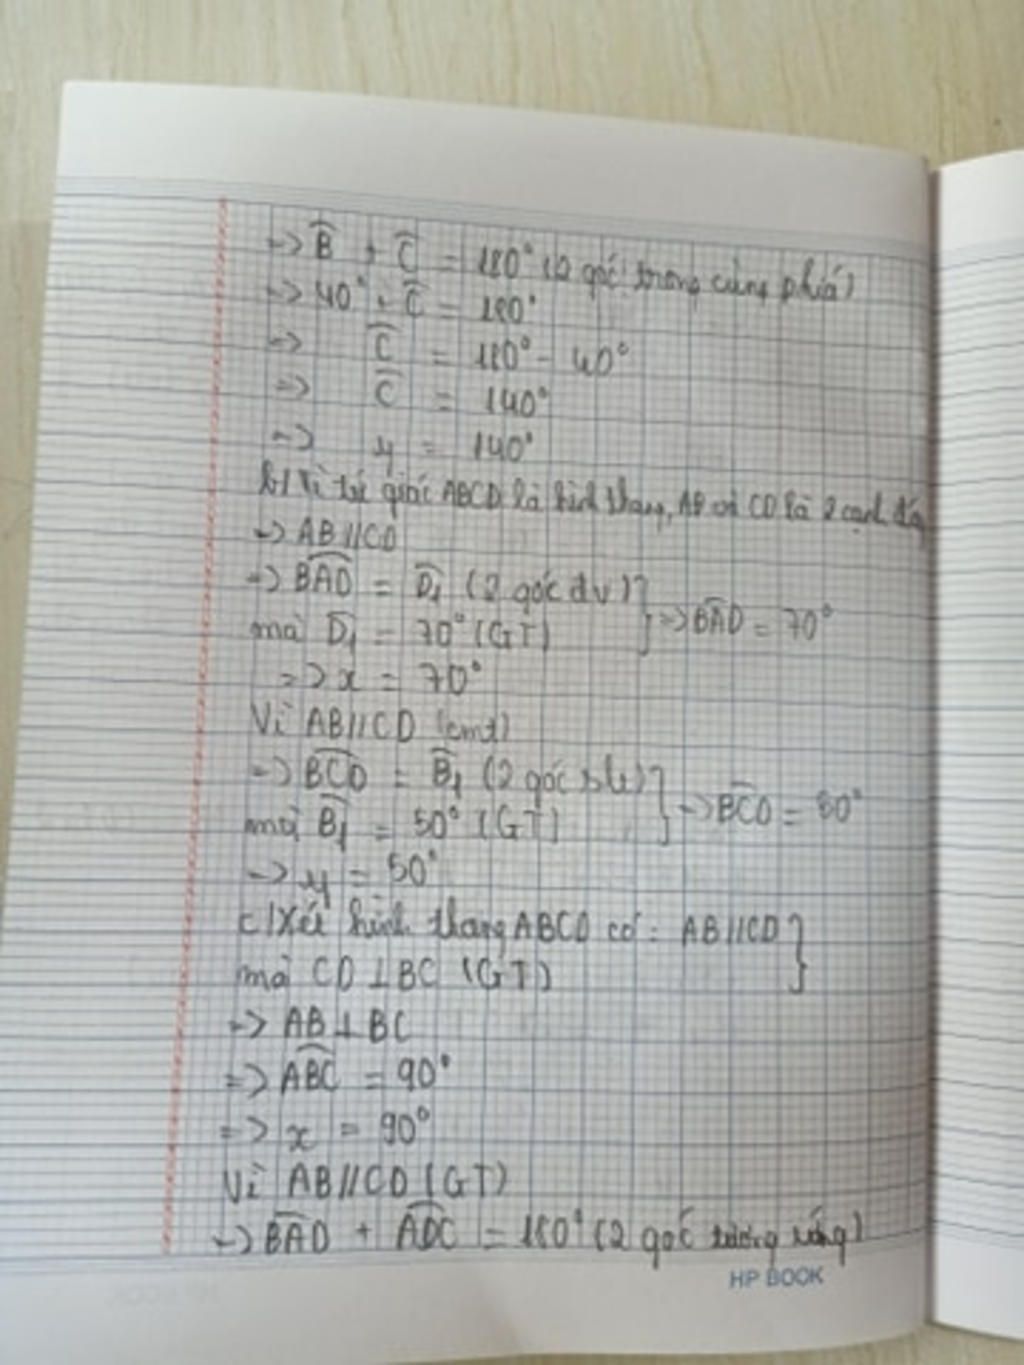 => B̂ + Ĉ = 180° (2 góc trong cùng phía)
=> 40° + Ĉ = 180°
=> Ĉ = 180° - 40°
=> Ĉ = 140°
=> y = 140°
b/ Vì tứ giác ABCD là hình thang, AB và CD là 2 cạnh đáy
=> AB // CD
=> BAD̂ = D̂₁ (2 góc đv) } => BAD̂ = 70°
mà D̂₁ = 70° (GT)
=> x = 70°
Vì AB // CD (cmt)
=> BCD̂ = B̂₁ (2 góc slt) } => BCD̂ = 50°
mà B̂₁ = 50° (GT)
=> y = 50°
c/ Xét hình thang ABCD có: AB // CD }
mà CD ⊥ BC (GT)
=> AB ⊥ BC
=> ABĈ = 90°
=> x = 90°
Vì AB // CD (GT)
=> BAD̂ + ADĈ = 180° (2 góc tương ứng)
HP BOOK